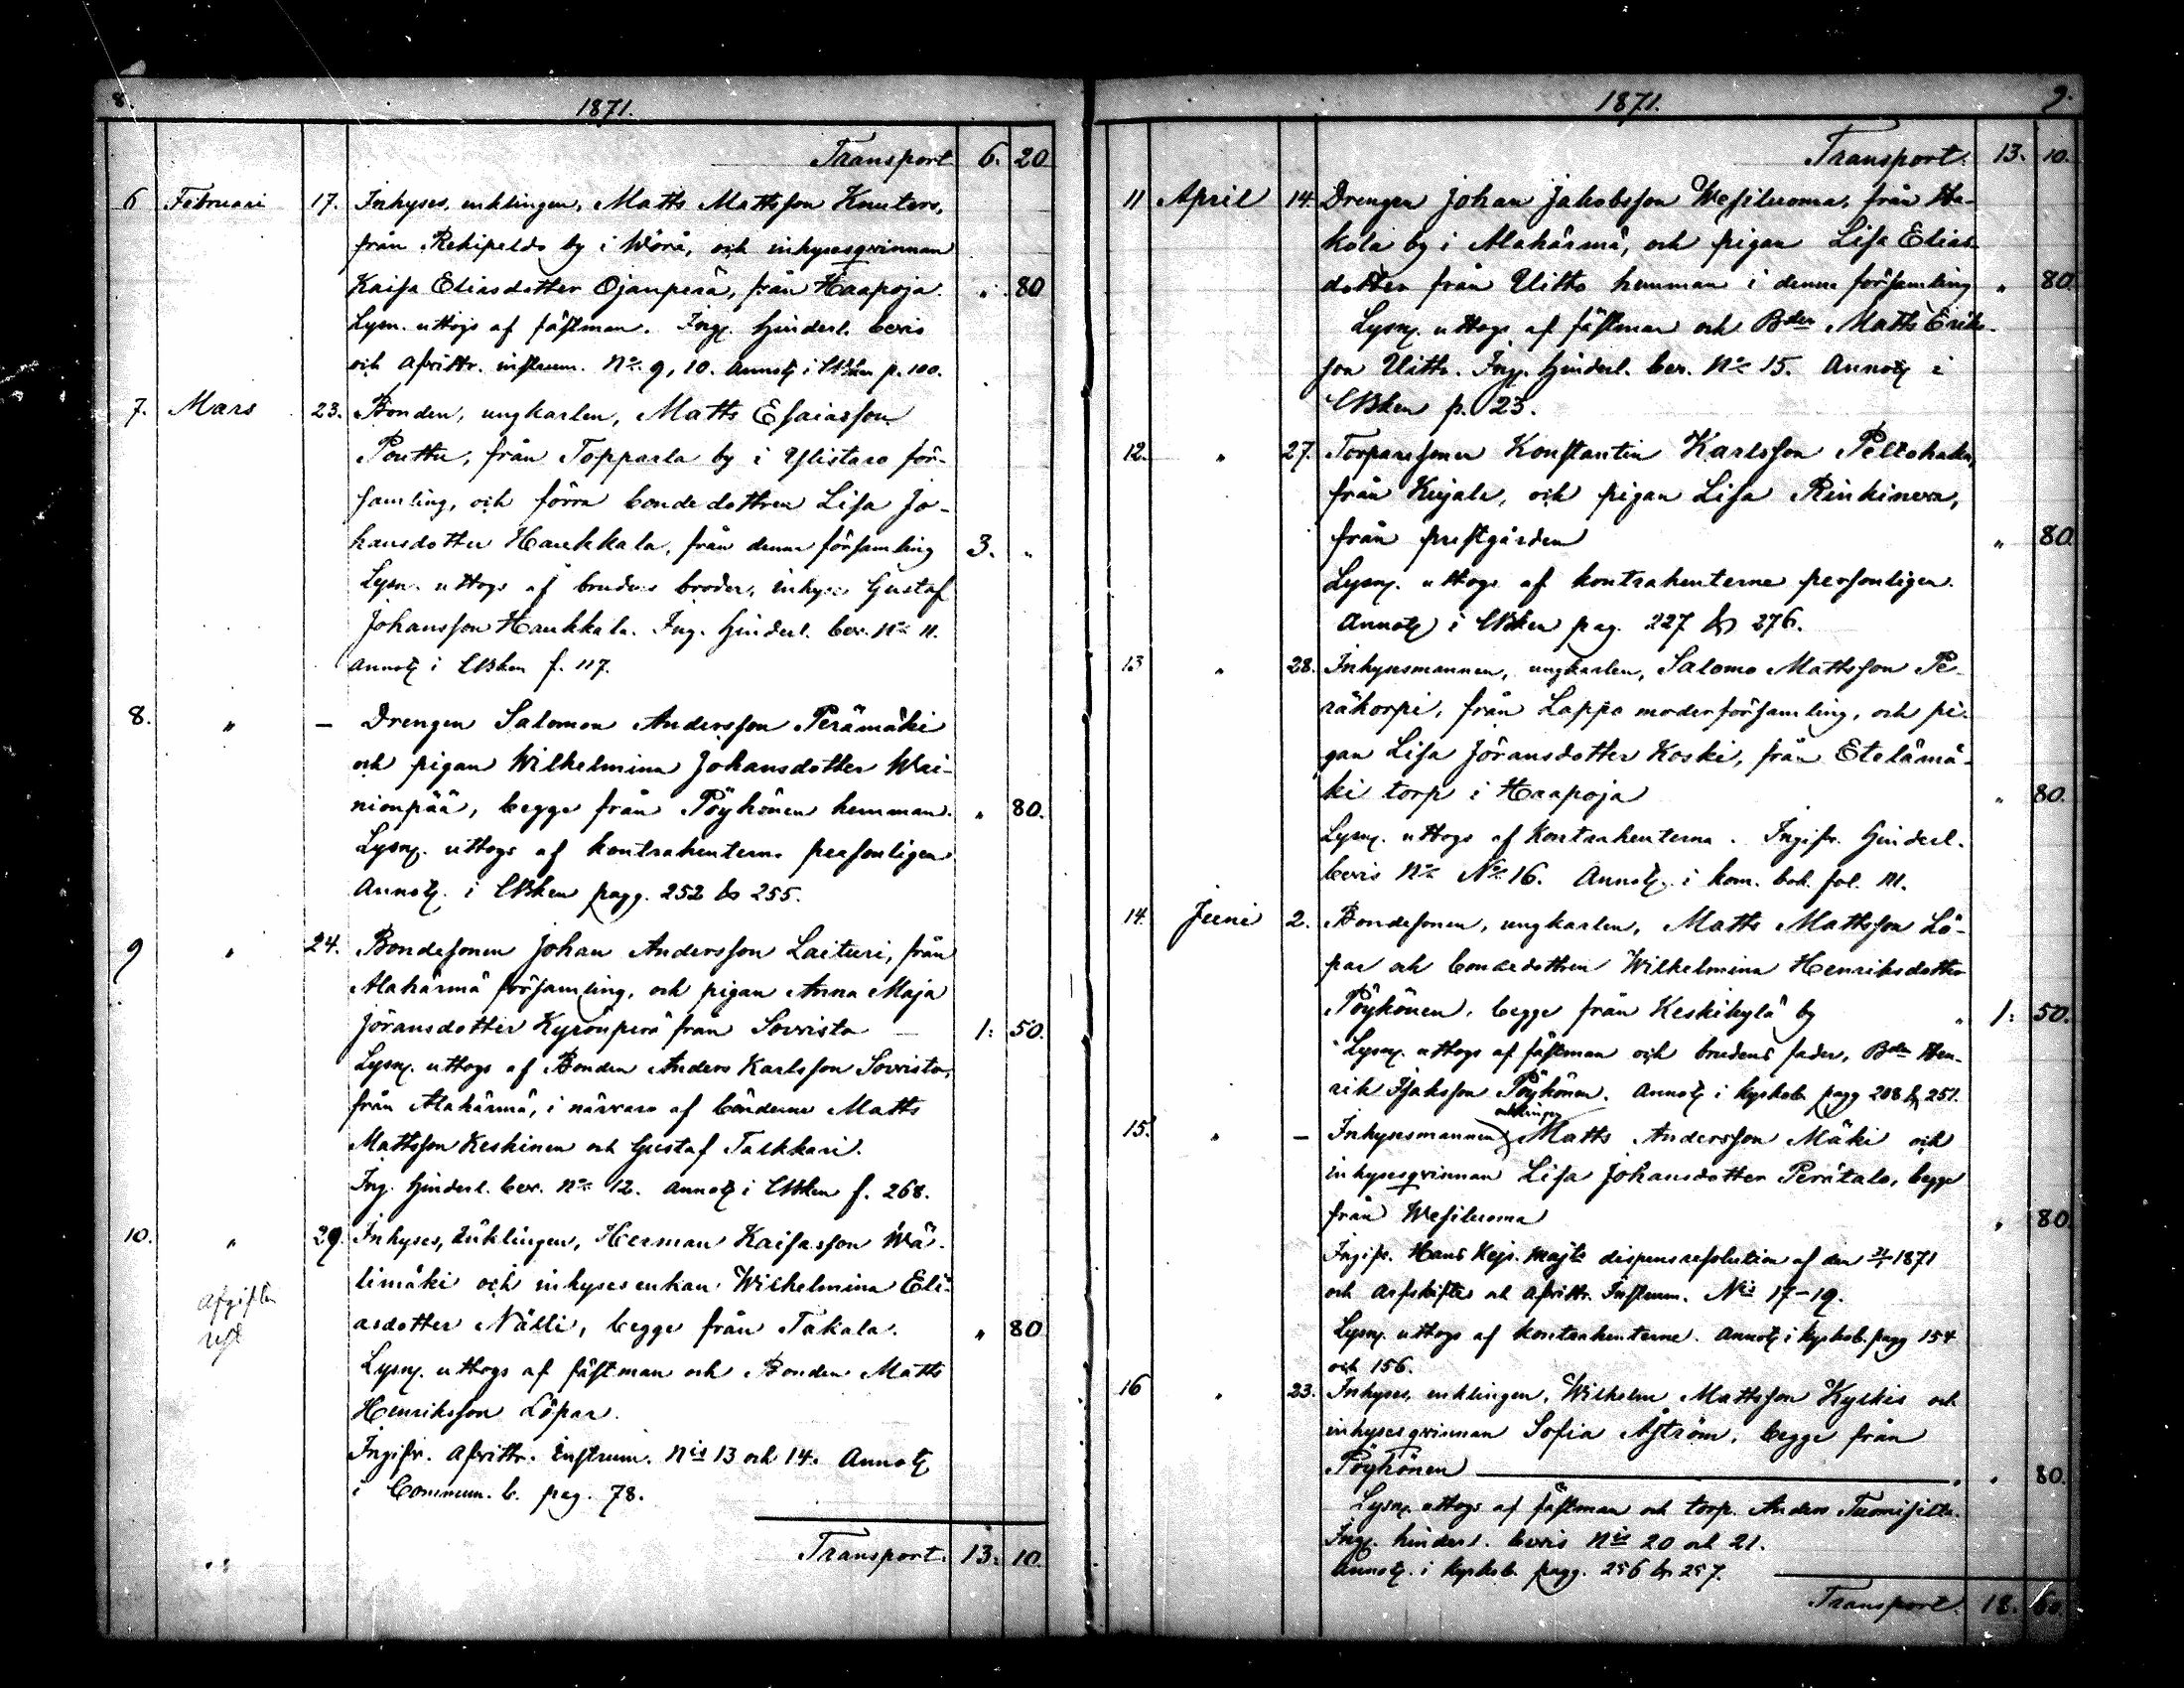 8.
1871.
Transport 6. 20
6 Februari 17. Inhyses, enklingen, Matts Mattsson Knuters,
från Rekipeldo by i Wörå, och inhysesqvinnan
Kaisa Eliasdotter Ojanperä, från Haapoja. „ 80
Lysn. uttogs af fästman. Ing. hinderl. bevis
och afvittr. instrum. No. 9, 10. Annot. i KBken p. 100.
7. Mars 23. Bonden, ungkarlen, Matts Esaiasson
Pouttu, från Topparla by i Ylistaro för-
samling, och förra bondedottren Lisa Jo-
hansdotter Haukkala, från denna församling 3. „
Lysn. uttogs af brudens broder, inhyses Gustaf
Johansson Haukkala. Ing. hinderl. bev. No 11.
Annot. i KBken f. 117.
8. „ – Drengen Salomon Andersson Perämäki
och pigan Wilhelmina Johansdotter Wai-
nionpää, begge från Pöyhönen hemman. „ 80.
Lysn. uttogs af kontrahenterna personligen
Annot. i KBken pagg. 252 & 255.
9 „ 24. Bondesonen Johan Andersson Laituri, från
Alahärmä församling, och pigan Anna Maja
Jöransdotter Kyrönperä från Sorvisto – 1: 50.
Lysn. uttogs af Bonden Anders Karlsson Sorvisto,
från Alahärmä, i närvaro af bönderne Matts
Mattsson Keskinen och Gustaf Talkkari.
Ing. hinderl. bev. No 12. Annot. i KBken f. 268.
10. „ 29. Inhyses, enklingen, Herman Kaisasson Wä-
limäki och inhysesenkan Wilhelmina Eli-
asdotter Nälli, begge från Takala. „ 80
Afgiften
rest
Lysn. uttogs af fästman och Bonden Matts
Henriksson Löpar.
Ingifv. Afvittr. Instrum. Nis 13 och 14. Annot.
i Commun. b. pag. 78.
Transport. 13: 10.
9.
1871.
Transport. 13. 10.
11 April 14. Drengen Johan Jakobsson Wesiluoma, från Ha-
kola by i Alahärmä, och pigan Lisa Elias-
dotter från Uitto hemman i denna församling „ 80.
Lysn. uttogs af fästman och Bden Matts Eriks-
son Uitto. Ing. hinderl. bev. No 15. Annot. i
KBken p. 23.
12. „ 27. Torparesonen Konstantin Karlsson Peltohaka,
från Kujala, och pigan Lisa Rinkineva,
från prestgården „ 80.
Lysn. uttogs af kontrahenterne personligen.
Annot. i KBken pag. 227 & 276.
13 „ 28. Inhysesmannen, ungkarlen, Salomo Mattsson Pe-
räkorpi, från Lappo moderförsamling, och pi-
gan Lisa Jöransdotter Koski, från Etelämä-
ki torp i Haapoja „ 80.
Lysn. uttogs af kontrahenterna. Ingifv. hinderl.
bevis No No 16. Annot. i kom. bok. fol. 111.
14. Juni 2. Bondesonen, ungkarlen, Matts Mattsson Lö-
par och bondedottren Wilhelmina Henriksdotter
Pöyhönen, begge från Keskikylä by „ 1: 50.
Lysn. uttogs af fästman och brudens fader, Bden Hen-
rik Isaksson Pöyhönen. Annot. i kyrkob. pagg 208 & 251.
enklingen
15. „ – Inhysesmannen Matts Andersson Mäki och
inhysesqvinnan Lisa Johansdotter Perätalo, begge
från Wesiluoma „ 80.
Ingifv. Hans Kejs. Majts dispensresolution af den 1871
och arfskiftes och afvittr. Instrum. Nis 17–19.
Lysn. uttogs af kontrahenterne. Annot. i kyrkob. pagg 154
och 156.
16 „ 23. Inhyses, enklingen, Wilhelm Mattsson Kylkis och
inhysesqvinnan Sofia Åström, begge från
Pöyhönen „ „ 80.
Lysn. uttogs af fästman och torp. Anders Tuomisilta.
Ing. hinderl. bevis Nis 20 och 21.
Annot. i kyrkob. pagg. 256 & 257.
Transport. 18. 60.